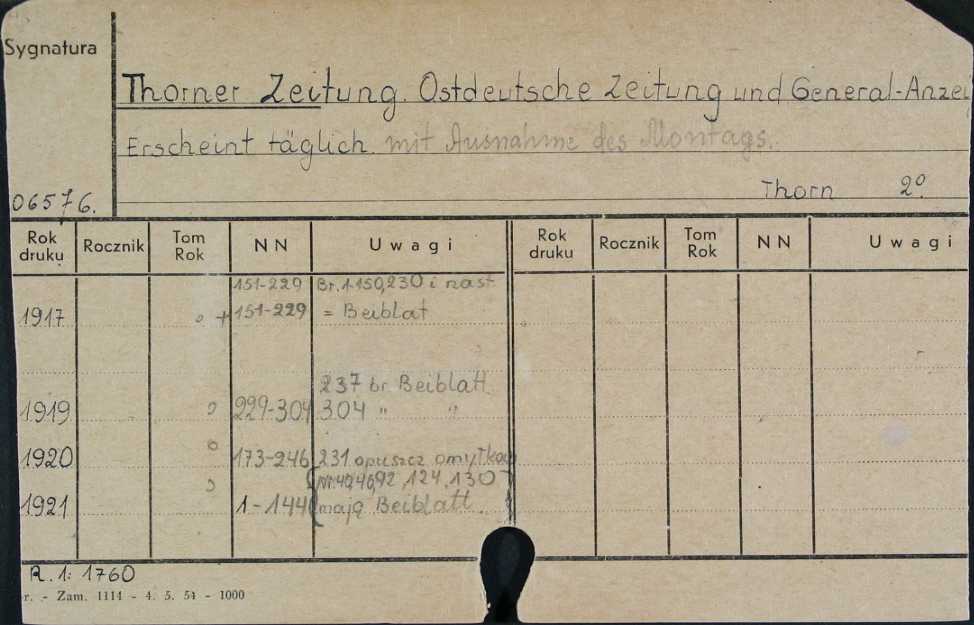 Sygnatura
Thorner Zeitung. Ostdeutsche Zeitung und General-Anzei
Erscheint täglich mit Ausnahme des Montags.
Thorn 2°.
06576.
Rok druku Rocznik Tom Rok NN Uwagi Rok druku Rocznik Tom Rok NN Uwagi
151-229 Br. 1-150, 230 i nast
1917 + 151-229 = Beiblat
237 br Beiblatt
1919 229-304 304 " "
1920 173-246 231 opuszcz omyłkow
92, 124, 130
1921 1-144 mają Beiblatt
R. 1: 1760
r. - Zam. 1114 - 4. 5. 54 - 1000